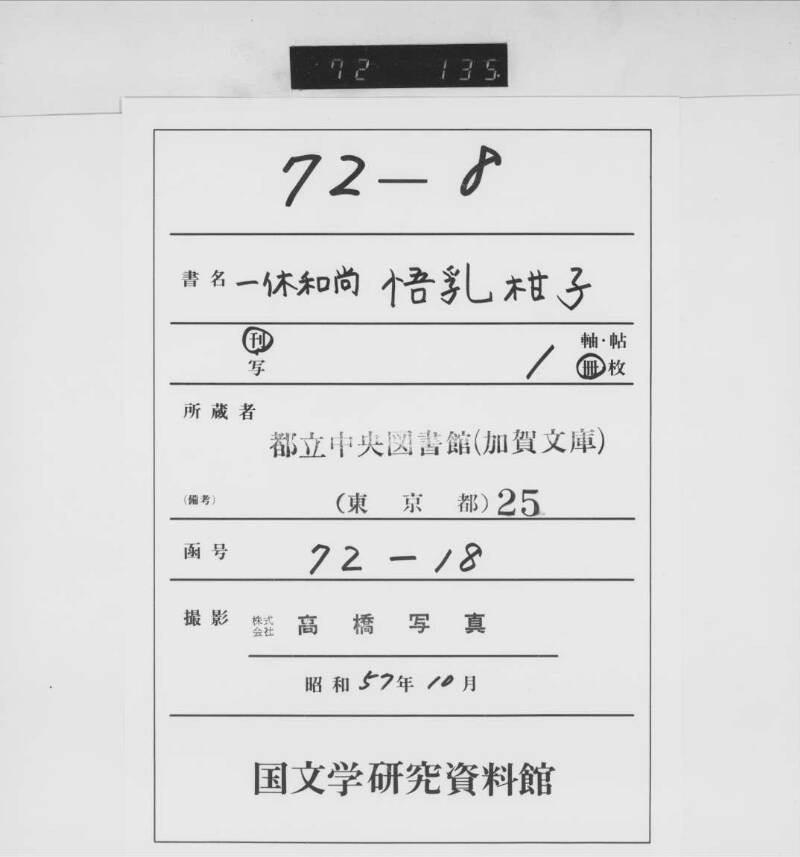 72 135
72-8
書名 一休和尚 悟乳柑子
刊 軸・帖
写 1 冊 枚
所蔵者
都立中央図書館(加賀文庫)
(備考) (東京都) 25
函号 72-18
撮影 株式会社 高橋写真
昭和57年10月
国文学研究資料館